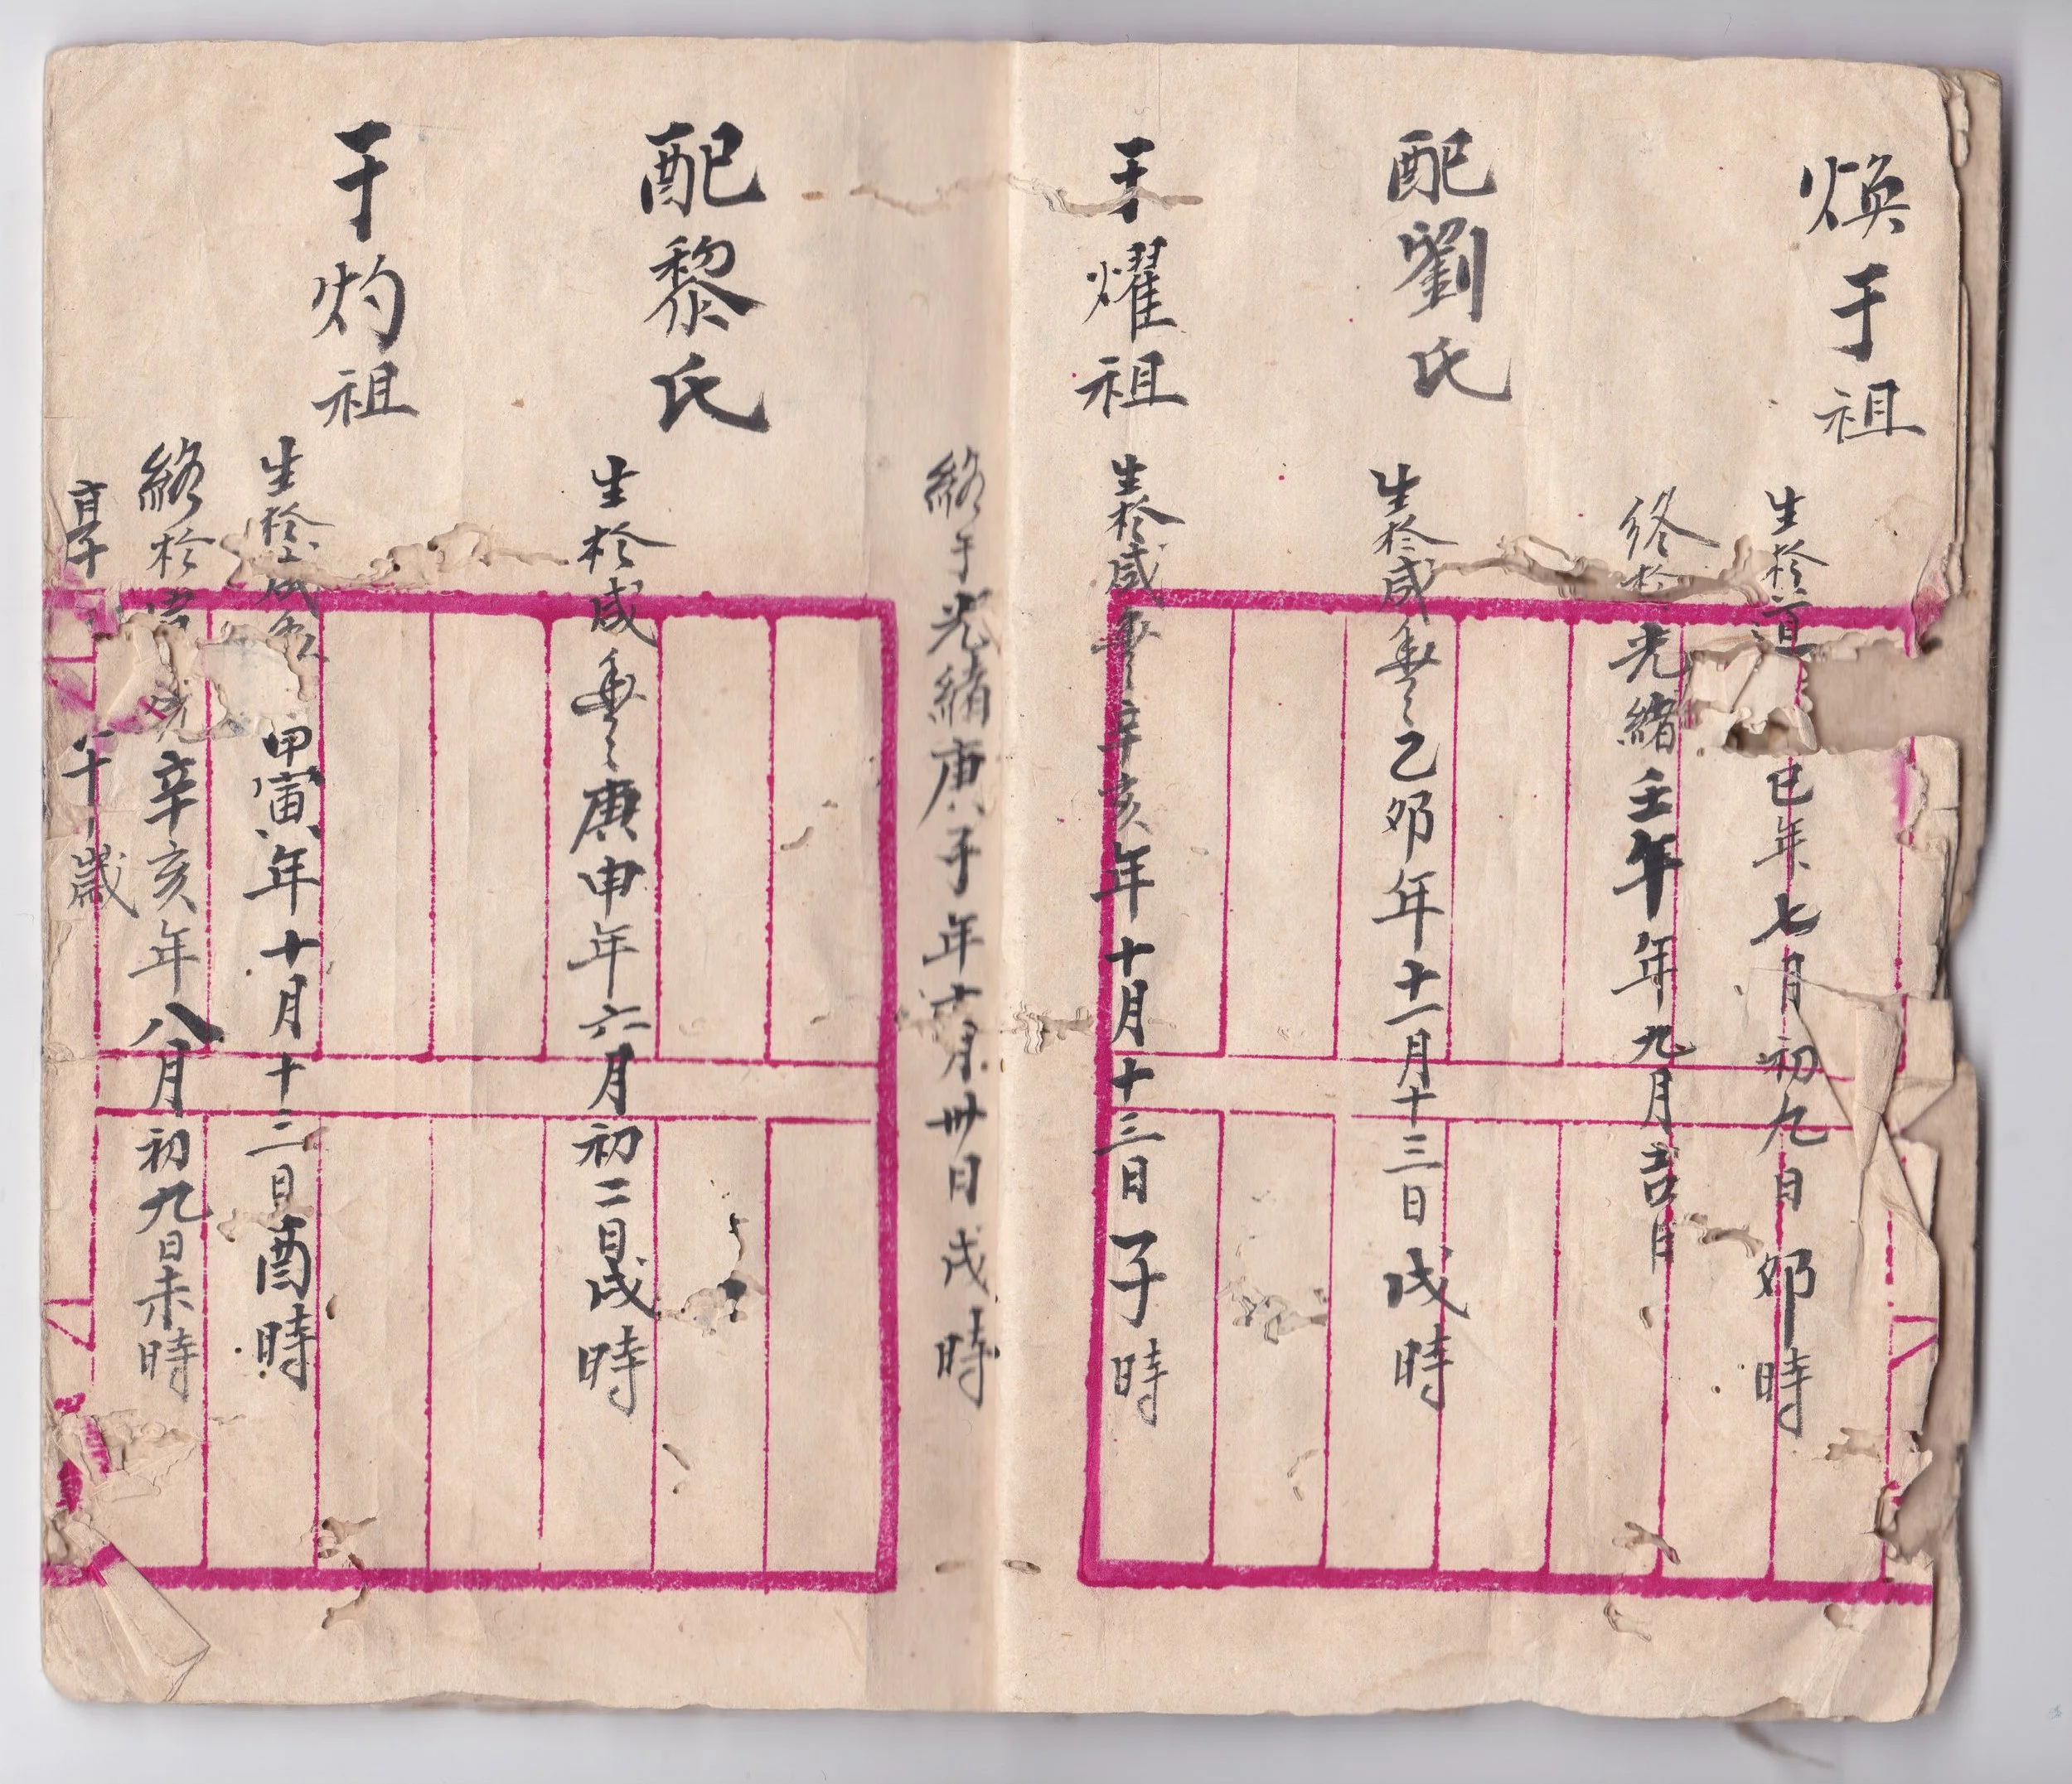 煥于祖
生於道 巳年七月初九日卯時
終於光緒壬午年九月吉日
配劉氏
生於咸豊乙卯年十一月十三日戌時
于燿祖
生於咸豊辛亥年十月十三日子時
終于光緒庚子年十月卅日戌時
配黎氏
生於咸豊庚申年六月初二日戌時
于灼祖
生於咸 甲寅年十月十二日酉時
終於宣 辛亥年八月初九日未時
享 歲